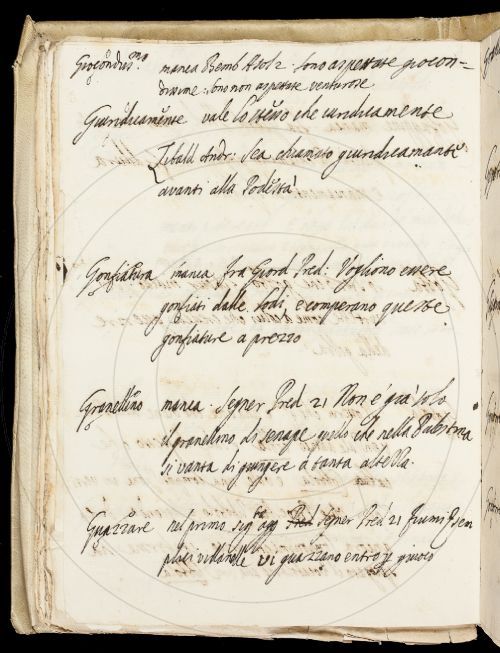 Giocondiss.mo manca Bemb. Asol. 2. sono aspettate giocon=
dissime: sono non aspettate venturose
Giuridicamente vale lo stesso che iuridicamente
Tibald. Andr: Sea chiamato giuridicamente
avanti alla Podestà
Gonfiatura manca fra Giord. Pred: Vogliono essere
gonfiati dalle lodi, e comperano queste
gonfiature a prezzo
Granellino manca. Segner Pred. 21 Non e' già solo
il granellino di senape quello che nella Palestina
si vanta di giungere a tanta altezza.
Guazzare nel primo sig.to agg. Segner Pred. 21
vi guazzano entro